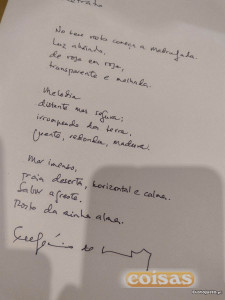 Retrato
No teu rosto começa a madrugada.
Luz abrindo,
de rosa em rosa,
transparente e molhada.
Melodia
distante mas segura;
irrompendo da terra,
quente, redonda, madura.
Mar imenso,
praia deserta, horizontal e calma.
Sabor agreste.
Rosto da minha alma.
Eugénio de
coisas